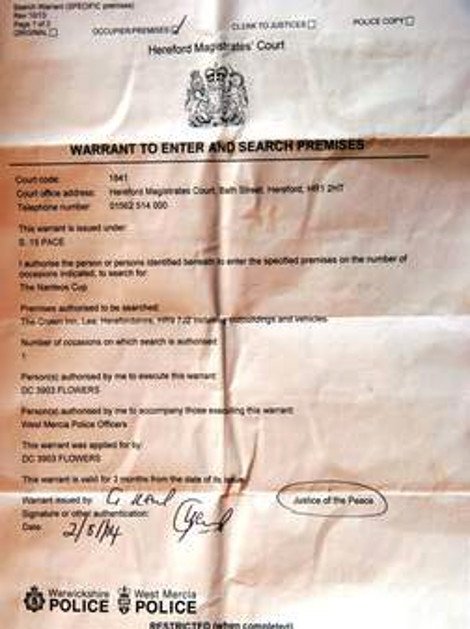 Search Warrant (SPECIFIC premises)
Rev 10/13
Page 1 of 2
ORIGINAL OCCUPIER/PREMISES CLERK TO JUSTICES POLICE COPY
Hereford Magistrates' Court
WARRANT TO ENTER AND SEARCH PREMISES
Court code: 1841
Court office address: Hereford Magistrates Court, Bath Street, Hereford, HR1 2HT
Telephone number 01562 514 000
This warrant is issued under:
S. 15 PACE
I authorise the person or persons identified beneath to enter the specified premises on the number of
occasions indicated, to search for:
The Nanteos Cup
Premises authorised to be searched:
The Crown Inn, Lea, Herefordshire, HR9 7JZ including outbuildings and vehicles
Number of occasions on which search is authorised:
1
Person(s) authorised by me to execute this warrant:
DC 3903 FLOWERS
Person(s) authorised by me to accompany those executing this warrant:
West Mercia Police Officers
This warrant was applied for by:
DC 3903 FLOWERS
This warrant is valid for 3 months from the date of its issue
Warrant issued by Justice of the Peace
Signature or other authentication:
Date: 2/8/14
Warwickshire POLICE West Mercia POLICE
RESTRICTED (when completed)